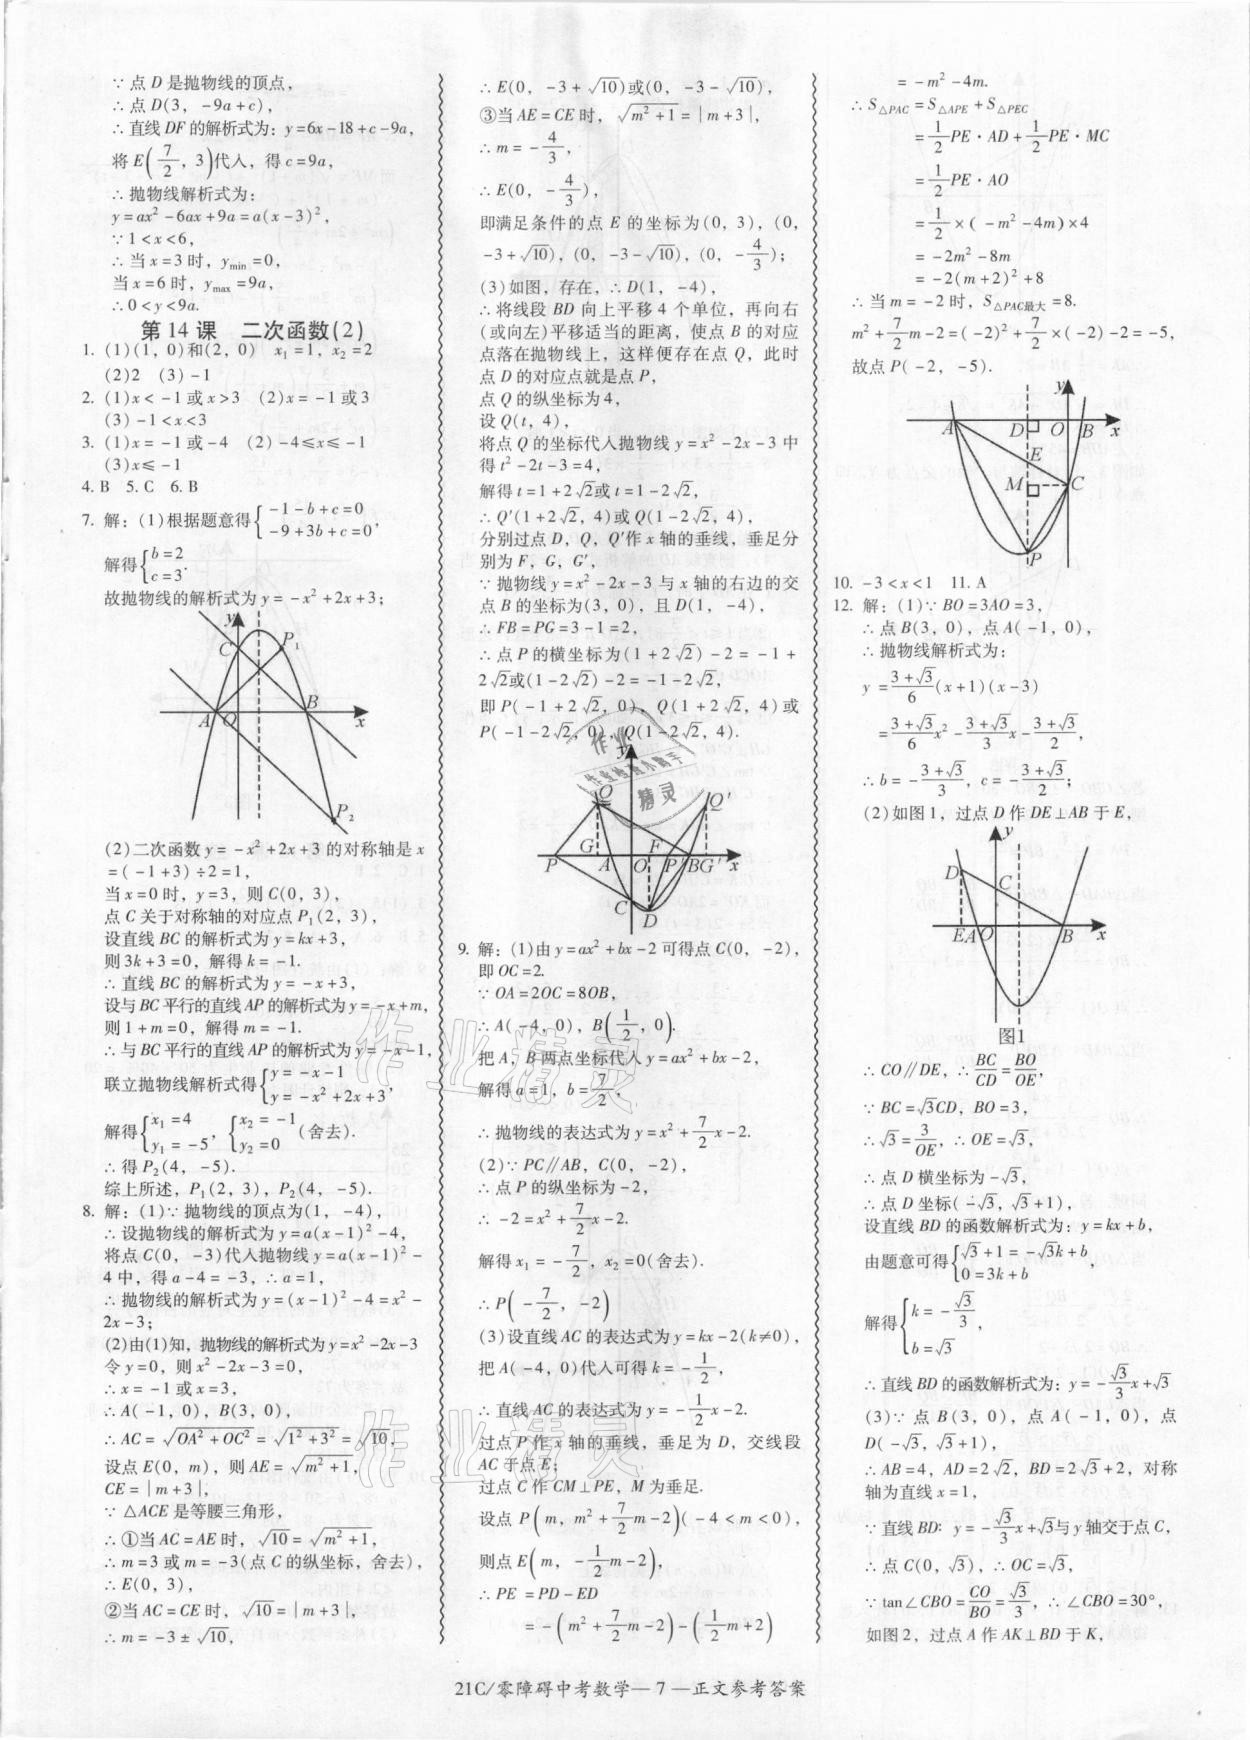 ∵点D是抛物线的顶点，
∴点D(3，-9a+c)，
∴直线DF的解析式为：y=6x-18+c-9a，
将E(7/2，3)代入，得c=9a，
∴抛物线解析式为：
y=ax²-6ax+9a=a(x-3)²，
∵1<x<6，
∴当x=3时，y_min=0，
当x=6时，y_max=9a，
∴0<y<9a.
第14课 二次函数(2)
1. (1)(1，0)和(2，0) x₁=1，x₂=2
(2)2 (3)-1
2. (1)x<-1或x>3 (2)x=-1或3
(3)-1<x<3
3. (1)x=-1或-4 (2)-4≤x≤-1
(3)x≤-1
4. B 5. C 6. B
7. 解：(1)根据题意得{-1-b+c=0
-9+3b+c=0，
解得{b=2
c=3.
故抛物线的解析式为y=-x²+2x+3；
y
C
P₁
A
O
B
x
P₂
(2)二次函数y=-x²+2x+3的对称轴是x
=(-1+3)÷2=1，
当x=0时，y=3，则C(0，3)，
点C关于对称轴的对应点P₁(2，3)，
设直线BC的解析式为y=kx+3，
则3k+3=0，解得k=-1.
∴直线BC的解析式为y=-x+3，
设与BC平行的直线AP的解析式为y=-x+m，
则1+m=0，解得m=-1.
∴与BC平行的直线AP的解析式为y=-x-1，
联立抛物线解析式得{y=-x-1
y=-x²+2x+3，
解得{x₁=4
y₁=-5，{x₂=-1
y₂=0(舍去).
∴得P₂(4，-5).
综上所述，P₁(2，3)，P₂(4，-5).
8. 解：(1)∵抛物线的顶点为(1，-4)，
∴设抛物线的解析式为y=a(x-1)²-4，
将点C(0，-3)代入抛物线y=a(x-1)²-
4中，得a-4=-3，∴a=1，
∴抛物线的解析式为y=(x-1)²-4=x²-
2x-3；
(2)由(1)知，抛物线的解析式为y=x²-2x-3
令y=0，则x²-2x-3=0，
∴x=-1或x=3，
∴A(-1，0)，B(3，0)，
∴AC=√(OA²+OC²)=√(1²+3²)=√10，
设点E(0，m)，则AE=√(m²+1)，
CE=|m+3|，
∵△ACE是等腰三角形，
∴①当AC=AE时，√10=√(m²+1)，
∴m=3或m=-3(点C的纵坐标，舍去)，
∴E(0，3)，
②当AC=CE时，√10=|m+3|，
∴m=-3±√10，
∴E(0，-3+√10)或(0，-3-√10)，
③当AE=CE时，√(m²+1)=|m+3|，
∴m=-4/3，
∴E(0，-4/3)，
即满足条件的点E的坐标为(0，3)，(0，
-3+√10)，(0，-3-√10)，(0，-4/3)；
(3)如图，存在，∴D(1，-4)，
∴将线段BD向上平移4个单位，再向右
(或向左)平移适当的距离，使点B的对应
点落在抛物线上，这样便存在点Q，此时
点D的对应点就是点P，
点Q的纵坐标为4，
设Q(t，4)，
将点Q的坐标代入抛物线y=x²-2x-3中
得t²-2t-3=4，
解得t=1+2√2或t=1-2√2，
∴Q′(1+2√2，4)或Q(1-2√2，4)，
分别过点D，Q，Q′作x轴的垂线，垂足分
别为F，G，G′，
∵抛物线y=x²-2x-3与x轴的右边的交
点B的坐标为(3，0)，且D(1，-4)，
∴FB=PG=3-1=2，
∴点P的横坐标为(1+2√2)-2=-1+
2√2或(1-2√2)-2=-1-2√2，
即P(-1+2√2，0)，Q(1+2√2，4)或
P(-1-2√2，0)，Q(1-2√2，4).
y
Q
Q′
P
G
A
O
F
P′
B
G′
x
C
D
9. 解：(1)由y=ax²+bx-2可得点C(0，-2)，
即OC=2.
∵OA=2OC=8OB，
∴A(-4，0)，B(1/2，0).
把A，B两点坐标代入y=ax²+bx-2，
解得a=1，b=7/2，
∴抛物线的表达式为y=x²+7/2x-2.
(2)∵PC∥AB，C(0，-2)，
∴点P的纵坐标为-2，
∴-2=x²+7/2x-2.
解得x₁=-7/2，x₂=0(舍去).
∴P(-7/2，-2)
(3)设直线AC的表达式为y=kx-2(k≠0)，
把A(-4，0)代入可得k=-1/2，
∴直线AC的表达式为y=-1/2x-2.
过点P作x轴的垂线，垂足为D，交线段
AC于点E；
过点C作CM⊥PE，M为垂足.
设点P(m，m²+7/2m-2)(-4<m<0)，
则点E(m，-1/2m-2)，
∴PE=PD-ED
=-(m²+7/2m-2)-(1/2m+2)
=-m²-4m.
∴S△PAC=S△APE+S△PEC
=1/2PE·AD+1/2PE·MC
=1/2PE·AO
=1/2×(-m²-4m)×4
=-2m²-8m
=-2(m+2)²+8
∴当m=-2时，S△PAC最大=8.
m²+7/2m-2=(-2)²+7/2×(-2)-2=-5，
故点P(-2，-5).
y
A
D
O
B
x
E
M
C
P
10. -3<x<1 11. A
12. 解：(1)∵BO=3AO=3，
∴点B(3，0)，点A(-1，0)，
∴抛物线解析式为：
y=(3+√3)/6(x+1)(x-3)
=(3+√3)/6x²-(3+√3)/3x-(3+√3)/2，
∴b=-(3+√3)/3，c=-(3+√3)/2；
(2)如图1，过点D作DE⊥AB于E，
y
D
C
E
A
O
B
x
图1
∴CO∥DE，∴BC/CD=BO/OE，
∵BC=√3CD，BO=3，
∴√3=3/OE，∴OE=√3，
∴点D横坐标为-√3，
∴点D坐标(-√3，√3+1)，
设直线BD的函数解析式为：y=kx+b，
由题意可得{√3+1=-√3k+b
0=3k+b，
解得{k=-√3/3
b=√3，
∴直线BD的函数解析式为：y=-√3/3x+√3
(3)∵点B(3，0)，点A(-1，0)，点
D(-√3，√3+1)，
∴AB=4，AD=2√2，BD=2√3+2，对称
轴为直线x=1，
∵直线BD：y=-√3/3x+√3与y轴交于点C，
∴点C(0，√3)，∴OC=√3，
∵tan∠CBO=CO/BO=√3/3，∴∠CBO=30°，
如图2，过点A作AK⊥BD于K，
21C/零障碍中考数学—7—正文参考答案
作业精灵
作业精灵